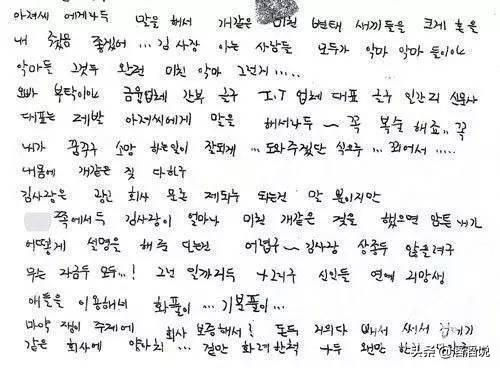 아저씨 에게라두 말을 해서 개같은 미친 변태 새끼들을 크게 혼을
내 줬음 좋겠어 ... 김 사장 아는 사람들 모두가 악마 악마 들이야
악마들 그것두 완전 미친 악마 그런거 ....
오빠 부탁이야 금융업체 간부 글구 I.T 업체 대표 글구 일간지 신문사
대표는 제발 아저씨에게 말을 해서라두 ~ 꼭 복수 해죠.. 꼭
내가 꿈꾸구 소망 하는일이 잘되게 ... 도와주겠단 식으루 ... 꾀어서 .....
내몸에 개같은 짓 다하구
김사장은 광진 회사 문론 제되루 되는건 말 뿐이지만
쪽에서두 김사장이 얼마나 미친 개같은 것을 했으면 암튼 내가
어떻게 설명을 해 준 단는건 어렵구 ~ 김사장 상종두 않을려구
우는 자금두 모두...! 그런 일까리두 그러구 신인들 연예 지망생
애들을 이용해서 화풀이 ... 기분풀이 ..
마약 쟁이 주제에 회사 보증해서? 돈두 거의다 빼서 써서
같은 회사에 양아치 ... 겉만 화려한척 그두 왠만
头条 @酒酒说